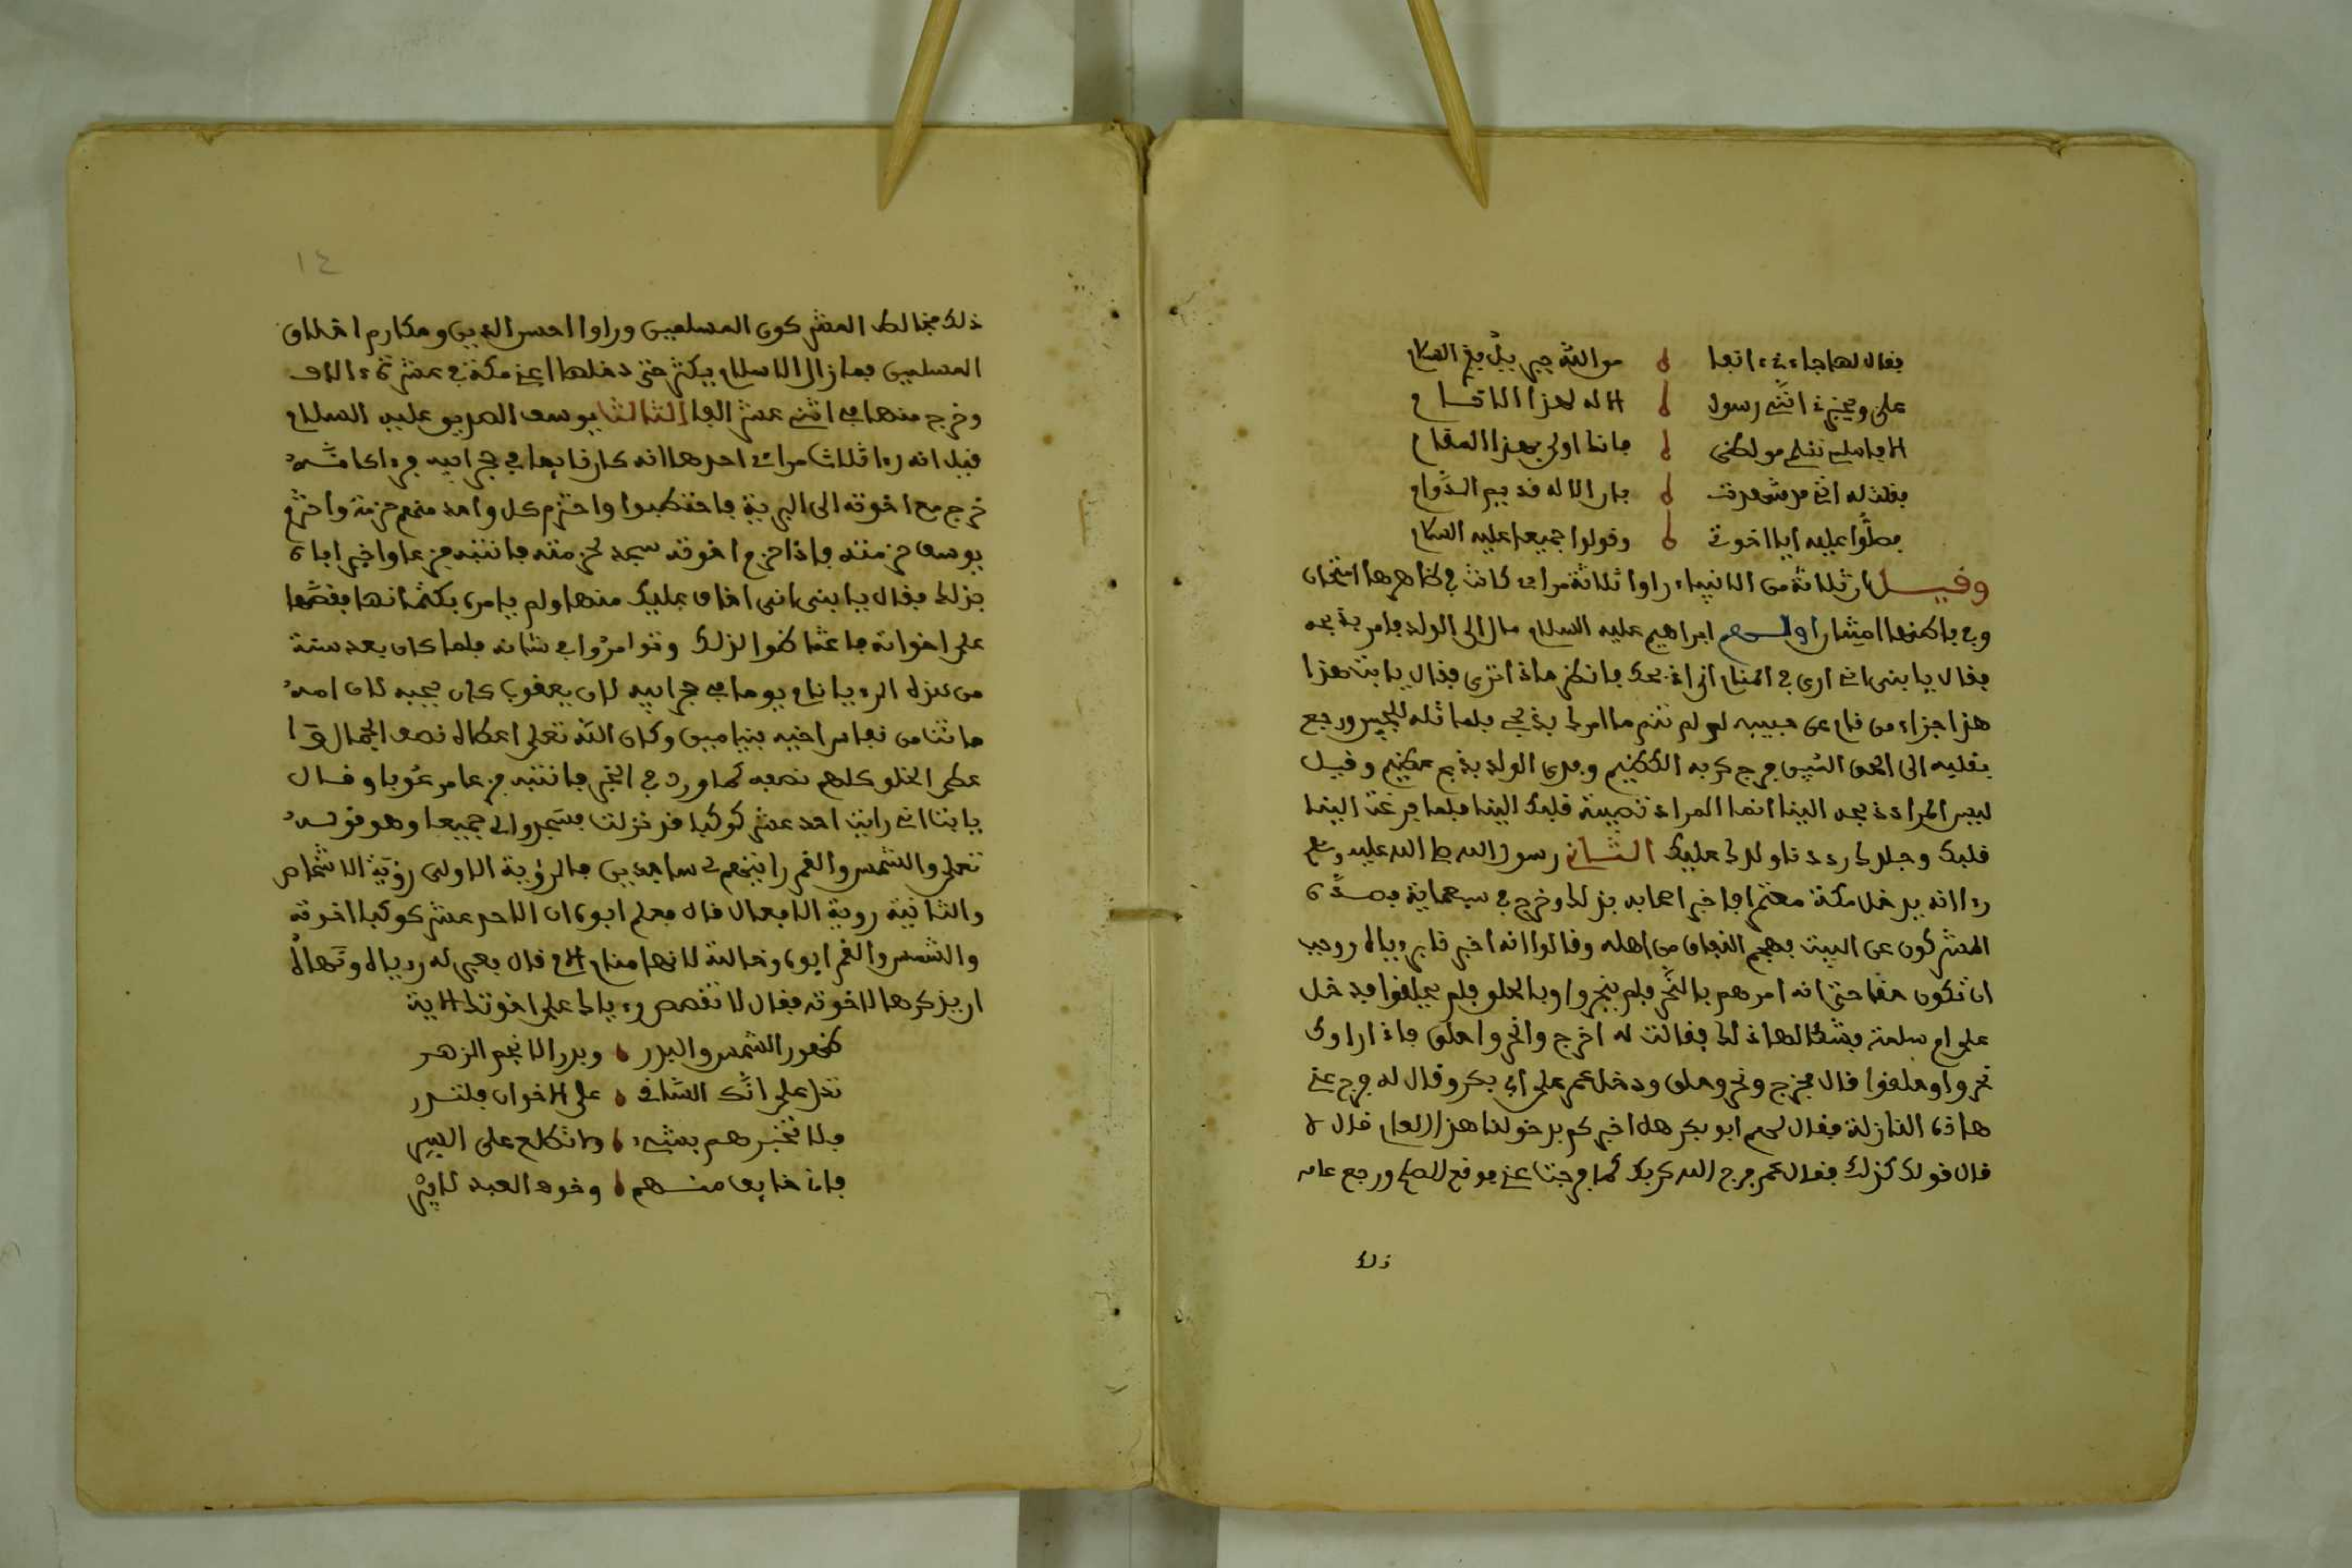 فقال لها جاءنى انبا من الله جبريل بغ السلام
على ويخبرنى انى رسول الاله لهذا الاقسام
فقلت له انى قد صدقت بار الاله قديم الدوام
فصلوا عليه ايا اخوتى وقولوا جميعا عليه السلام
وقيل ان ثلاثة من الانبياء راوا ثلاثة مرات كانت فى ظاهرها امتحان
وفى باطنها ابراهيم عليه السلام مال الى الولد فامر بذبحه
فقال يا بنى انى ارى فى المنام انى اذبحك فانظر ماذا ترى فقال يا ابت هذا
هذا جزاء من نام عن حبيبه لو لم تنم ما امرك بذبحى فلما تله للجبين ورجع
بقلبه الى الحق المبين فرج كربه العظيم وفدى الولد بذبح عظيم وقيل
ليس المراد ذبحه الينا انما المراد قلبك الينا فلما فرغت الينا
قلبك وجلدك رددنا ولدك عليك الثانى رسول الله صلى الله عليه وسلم
رءا انه يدخل مكة معتمرا فاخبر اصحابه بذلك وخرج فى سبعماية فصده
المشركون عن البيت فهجم النفاق من اهله وقالوا انه اخبرنا برءياه ووجب
ان تكون حقا حتى انه امرهم بالنحر فلم ينحروا وبالحلق فلم يحلقوا فدخل
على ام سلمة فشكى لها ذلك فقالت له اخرج وانحر واحلق فاذا راوك
نحروا وحلقوا قال فخرج ونحر وحلق ودخل عمر على ابى بكر وقال له فرج عنى
هاذه النازلة فقال لهم ابو بكر هل اخبركم بدخولنا هذا العام قال لا
قال قولك كذلك فقال عمر فرج الله كربك كما فرجت عنى فوقع الصلح ورجع عامه
ذلك
١٤
ذلك فخالط المشركون المسلمين وراوا احسن الدين ومكارم اخلاق
المسلمين فما زال الاسلام يكثر حتى دخلها اعنى مكة فى عشرة ءالاف
وخرج منها فى اثنى عشر الفا الثالث يوسف الصديق عليه السلام
قيل انه رءا ثلاث مرات احدها انه كان نايما فى حجر ابيه فرءا كانه
خرج مع اخوته الى البرية فاحتطبوا واحتزم كل واحد منهم حزمة واحتزم
يوسف حزمته فاذا حزم اخوته سجد لحزمته فانتبه فزعا واخبر اباه
بذلك فقال يا بنى انى اخاف عليك منها ولم يامره بكتمانها فقصها
على اخوانه فاغتاظوا لذلك وتوامروا فى شانه فلما كان بعد سنة
من هذه الرءيا نام يوما فى حجر ابيه لان يعقوب كان يحبه لان امه
ماتت من نفاس اخيه بنيامين وكان الله تعلى اعطاه نصف الجمال
عطى الخلق كلهم نصفه كما ورد فى الخبر فانتبه فزعا مرعوبا وقال
يا ابت انى رايت احد عشر كوكبا قد نزلت فسجدوا لى جميعا وهو قوله
تعلى والشمس والقمر رايتهم لى ساجدين فالرؤية الاولى رؤية الاشخاص
والثانية روية الافعال قال فعلم ابوه ان الاحد عشر كوكبا اخوته
والشمس والقمر ابوه وخالته لانها قال يعبى له رءياه ونهاه
ان يذكرها لاخوته فقال لا تقصص رءياك على اخوتك الاية
ظهور الشمس والبدر وبدر الانجم الزهر
تدل على انك على الاخوان
فلا تخبرهم بشىء ولا تطلع على السر
فانى خايف منهم وخوف العبد